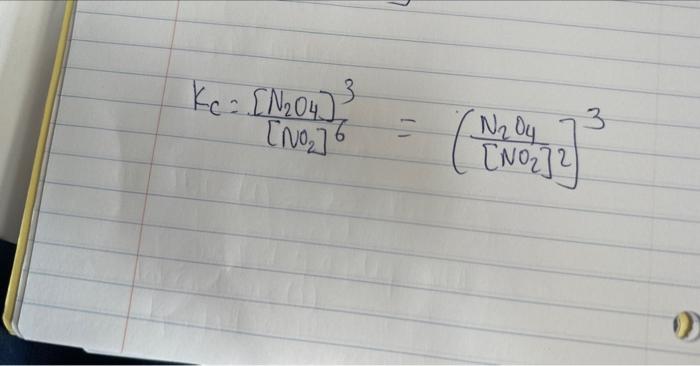 Kc = [N₂O₄]³ / [NO₂]⁶ = (N₂O₄ / [NO₂]²]³